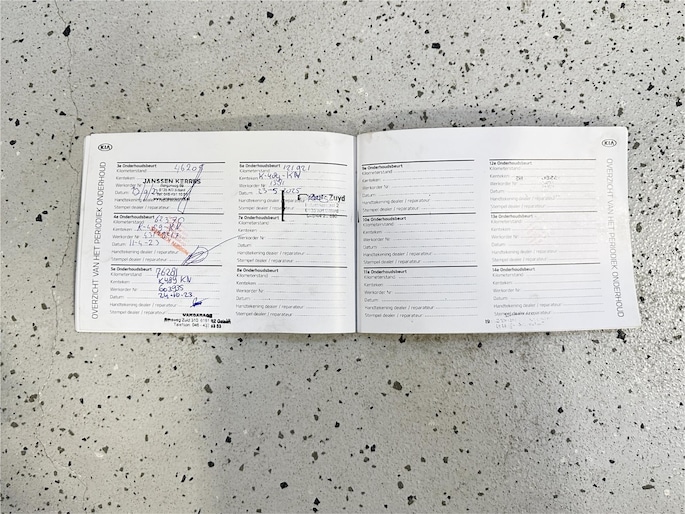 KIA
OVERZICHT VAN HET PERIODIEK ONDERHOUD
3e Onderhoudsbeurt
Kilometerstand
Kenteken
Werkorder Nr
Datum
Handtekening dealer / reparateur
Stempel dealer / reparateur
JANSSEN KERRES
4e Onderhoudsbeurt
Kilometerstand
Kenteken K-489-KN
Werkorder Nr
Datum 11-4-23
Handtekening dealer / reparateur
Stempel dealer / reparateur
5e Onderhoudsbeurt
Kilometerstand 76281
Kenteken K489 KN
Werkorder Nr
Datum 24-10-23
Handtekening dealer / reparateur
Stempel dealer / reparateur
VANDARAGE
6e Onderhoudsbeurt
Kilometerstand 121921
Kenteken K-489-KN
Werkorder Nr
Datum 23-5-2025
Handtekening dealer / reparateur
Stempel dealer / reparateur
Zuyd
7e Onderhoudsbeurt
Kilometerstand
Kenteken
Werkorder Nr
Datum
Handtekening dealer / reparateur
Stempel dealer / reparateur
8e Onderhoudsbeurt
Kilometerstand
Kenteken
Werkorder Nr
Datum
Handtekening dealer / reparateur
Stempel dealer / reparateur
9e Onderhoudsbeurt
Kilometerstand
Kenteken
Werkorder Nr
Datum
Handtekening dealer / reparateur
Stempel dealer / reparateur
10e Onderhoudsbeurt
Kilometerstand
Kenteken
Werkorder Nr
Datum
Handtekening dealer / reparateur
Stempel dealer / reparateur
11e Onderhoudsbeurt
Kilometerstand
Kenteken
Werkorder Nr
Datum
Handtekening dealer / reparateur
Stempel dealer / reparateur
12e Onderhoudsbeurt
Kilometerstand
Kenteken
Werkorder Nr
Datum
Handtekening dealer / reparateur
Stempel dealer / reparateur
13e Onderhoudsbeurt
Kilometerstand
Kenteken
Werkorder Nr
Datum
Handtekening dealer / reparateur
Stempel dealer / reparateur
14e Onderhoudsbeurt
Kilometerstand
Kenteken
Werkorder Nr
Datum
Handtekening dealer / reparateur
Stempel dealer / reparateur
KIA
OVERZICHT VAN HET PERIODIEK ONDERHOUD